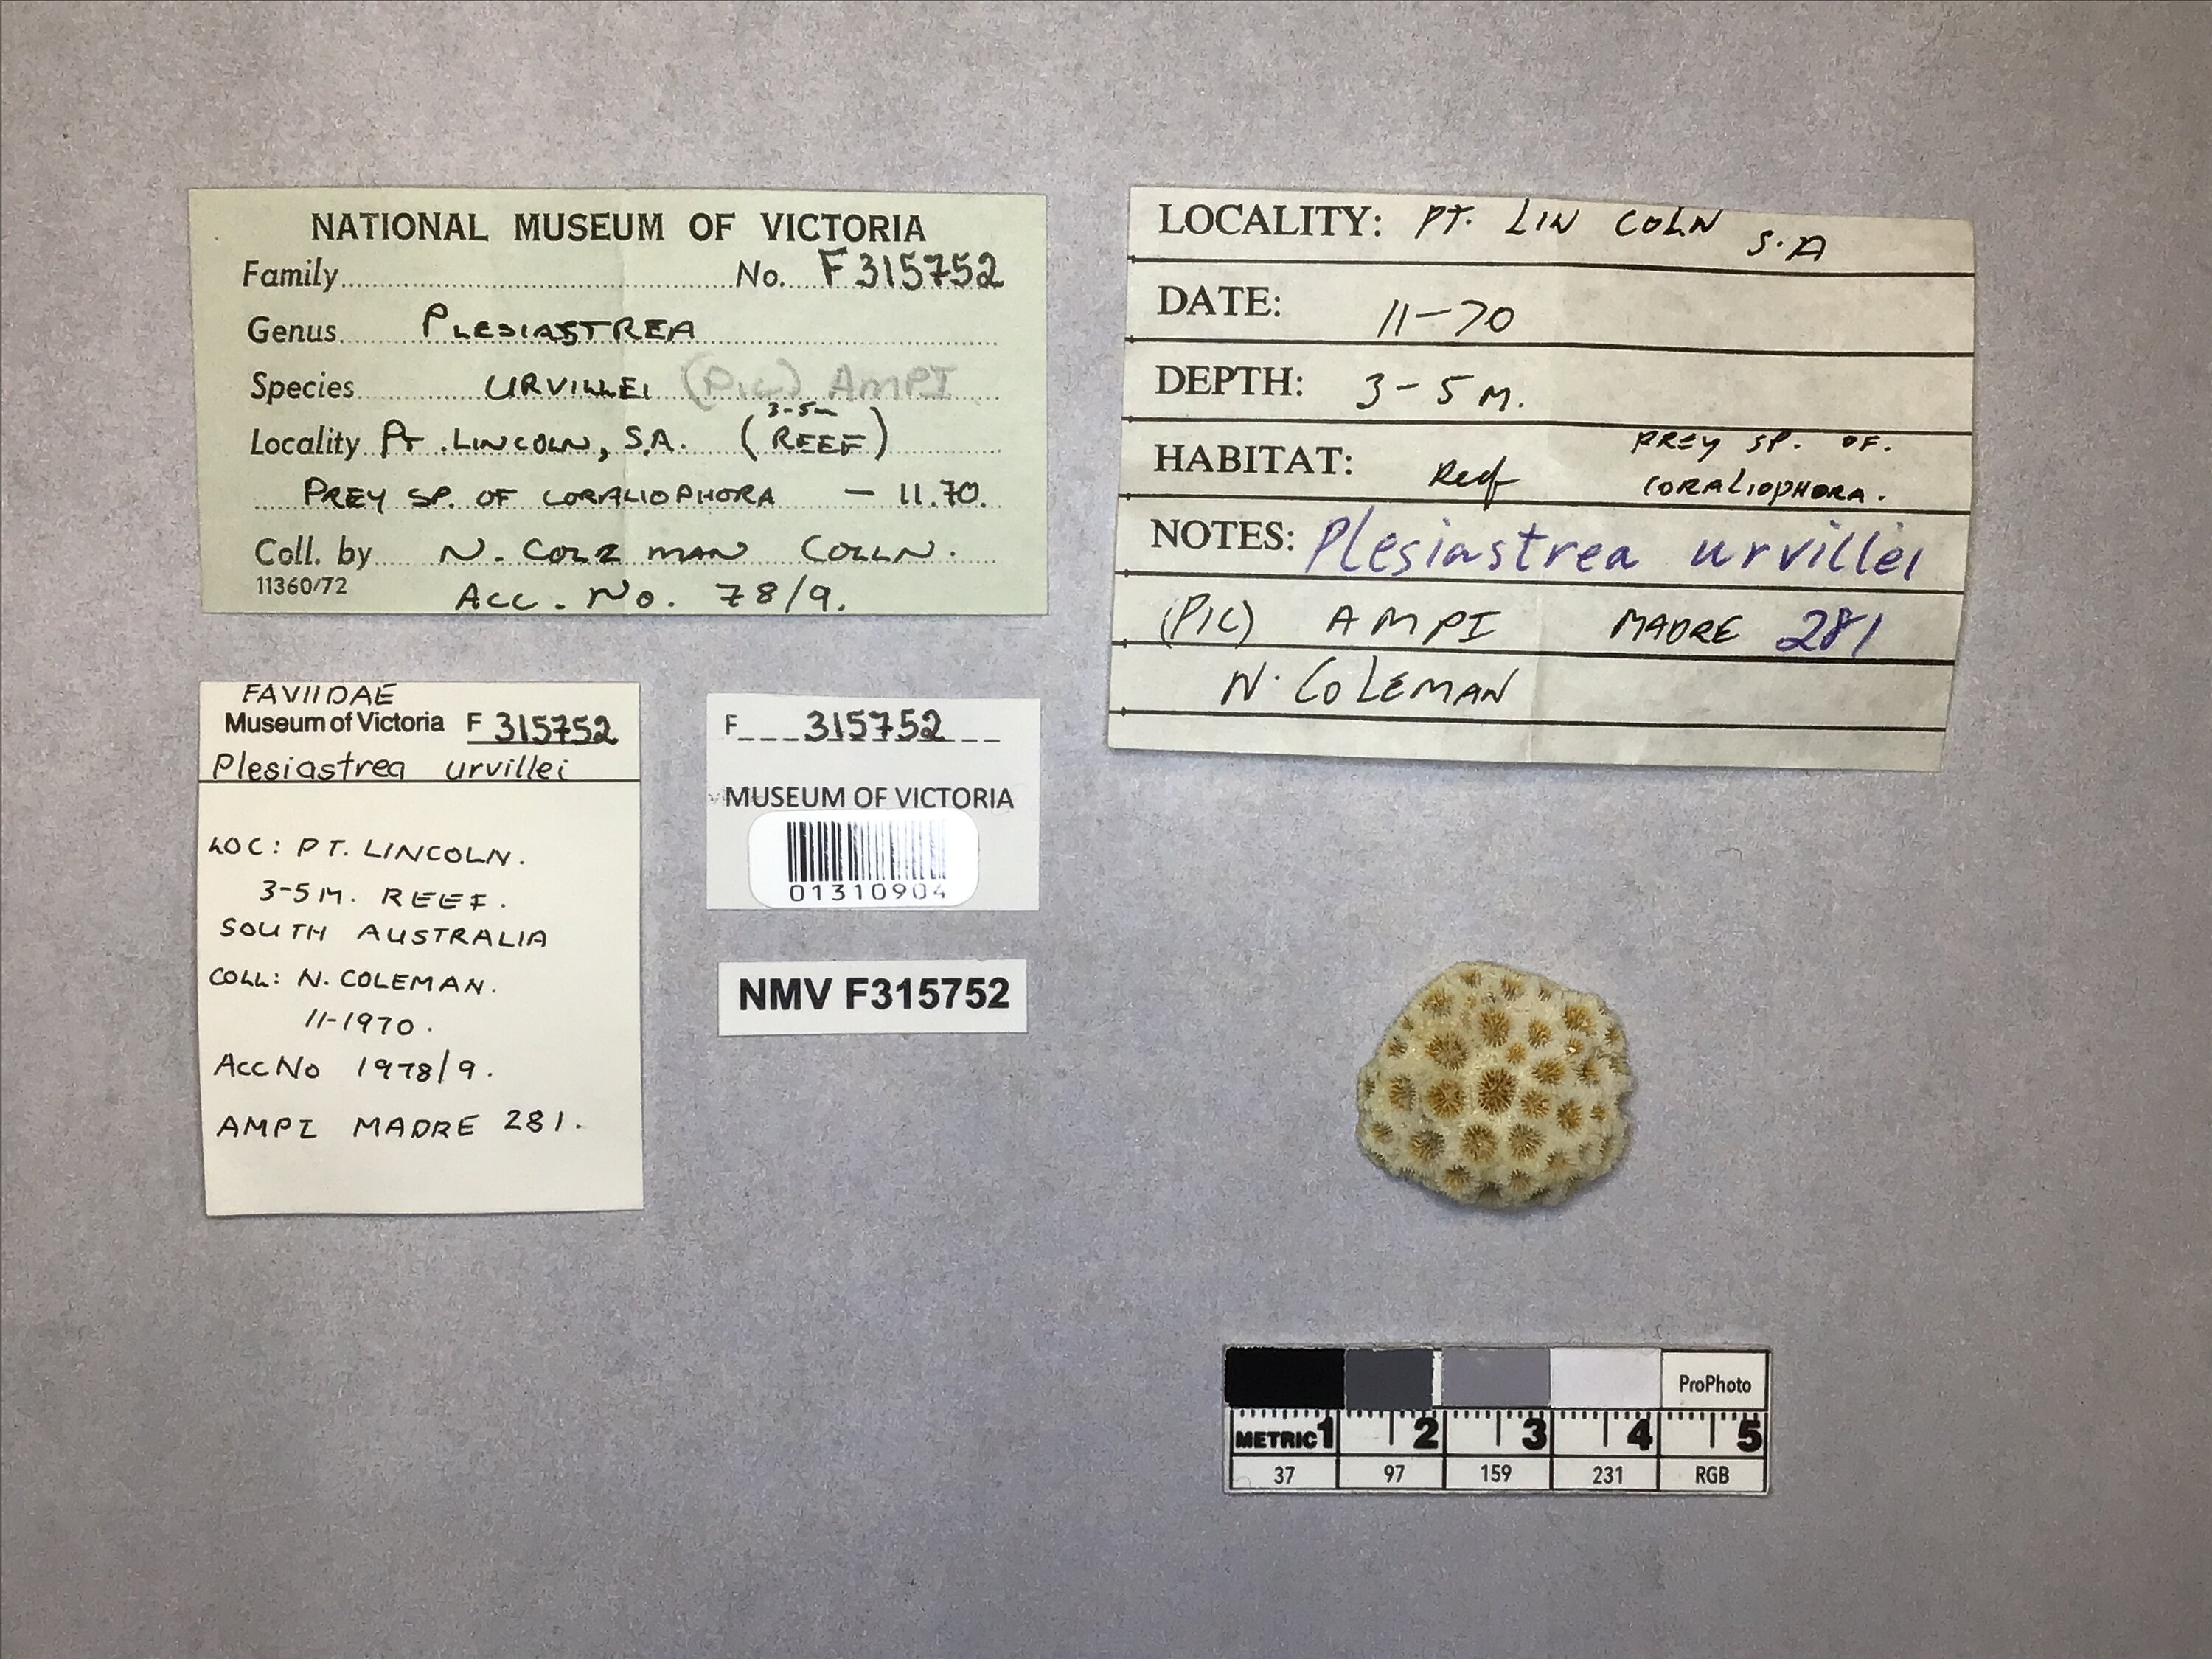 NATIONAL MUSEUM OF VICTORIA
Family No. F315752
Genus PLESIASTREA
Species URVILLEI (PIC) AMPI
Locality PT. LINCOLN, S.A. (REEF) 3-5m
PREY SP. OF CORALIOPHORA — 11.70.
Coll. by N. COLEMAN COLLN.
11360/72
ACC. No. 78/9.
LOCALITY: PT. LIN COLN S.A
DATE: 11-70
DEPTH: 3-5 M.
HABITAT: Reef PREY SP. OF. CORALIOPHORA.
NOTES: Plesiastrea urvillei
(PIC) AMPI MADRE 281
N. COLEMAN
FAVIIDAE
Museum of Victoria F 315752
Plesiastrea urvillei
LOC: PT. LINCOLN.
3-5M. REEF.
SOUTH AUSTRALIA
COLL: N. COLEMAN.
11-1970.
Acc No 1978/9.
AMPI MADRE 281.
F 315752
MUSEUM OF VICTORIA
01310904
NMV F315752
ProPhoto
METRIC 1 2 3 4 5
37 97 159 231 RGB